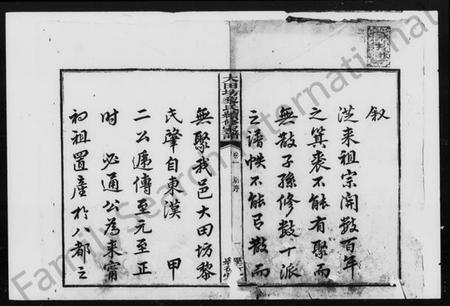 叙
從来祖宗開數百年
之箕裘不能有聚而
無散子孫修數十派
之譜帙不能有散而
無聚我邑大田坊黎
氏肇自東漢 甲
二公遞傳至元至正
時 必通公為来甯
初祖置產於八都之
大田坊黎氏續修家譜
Family Search International